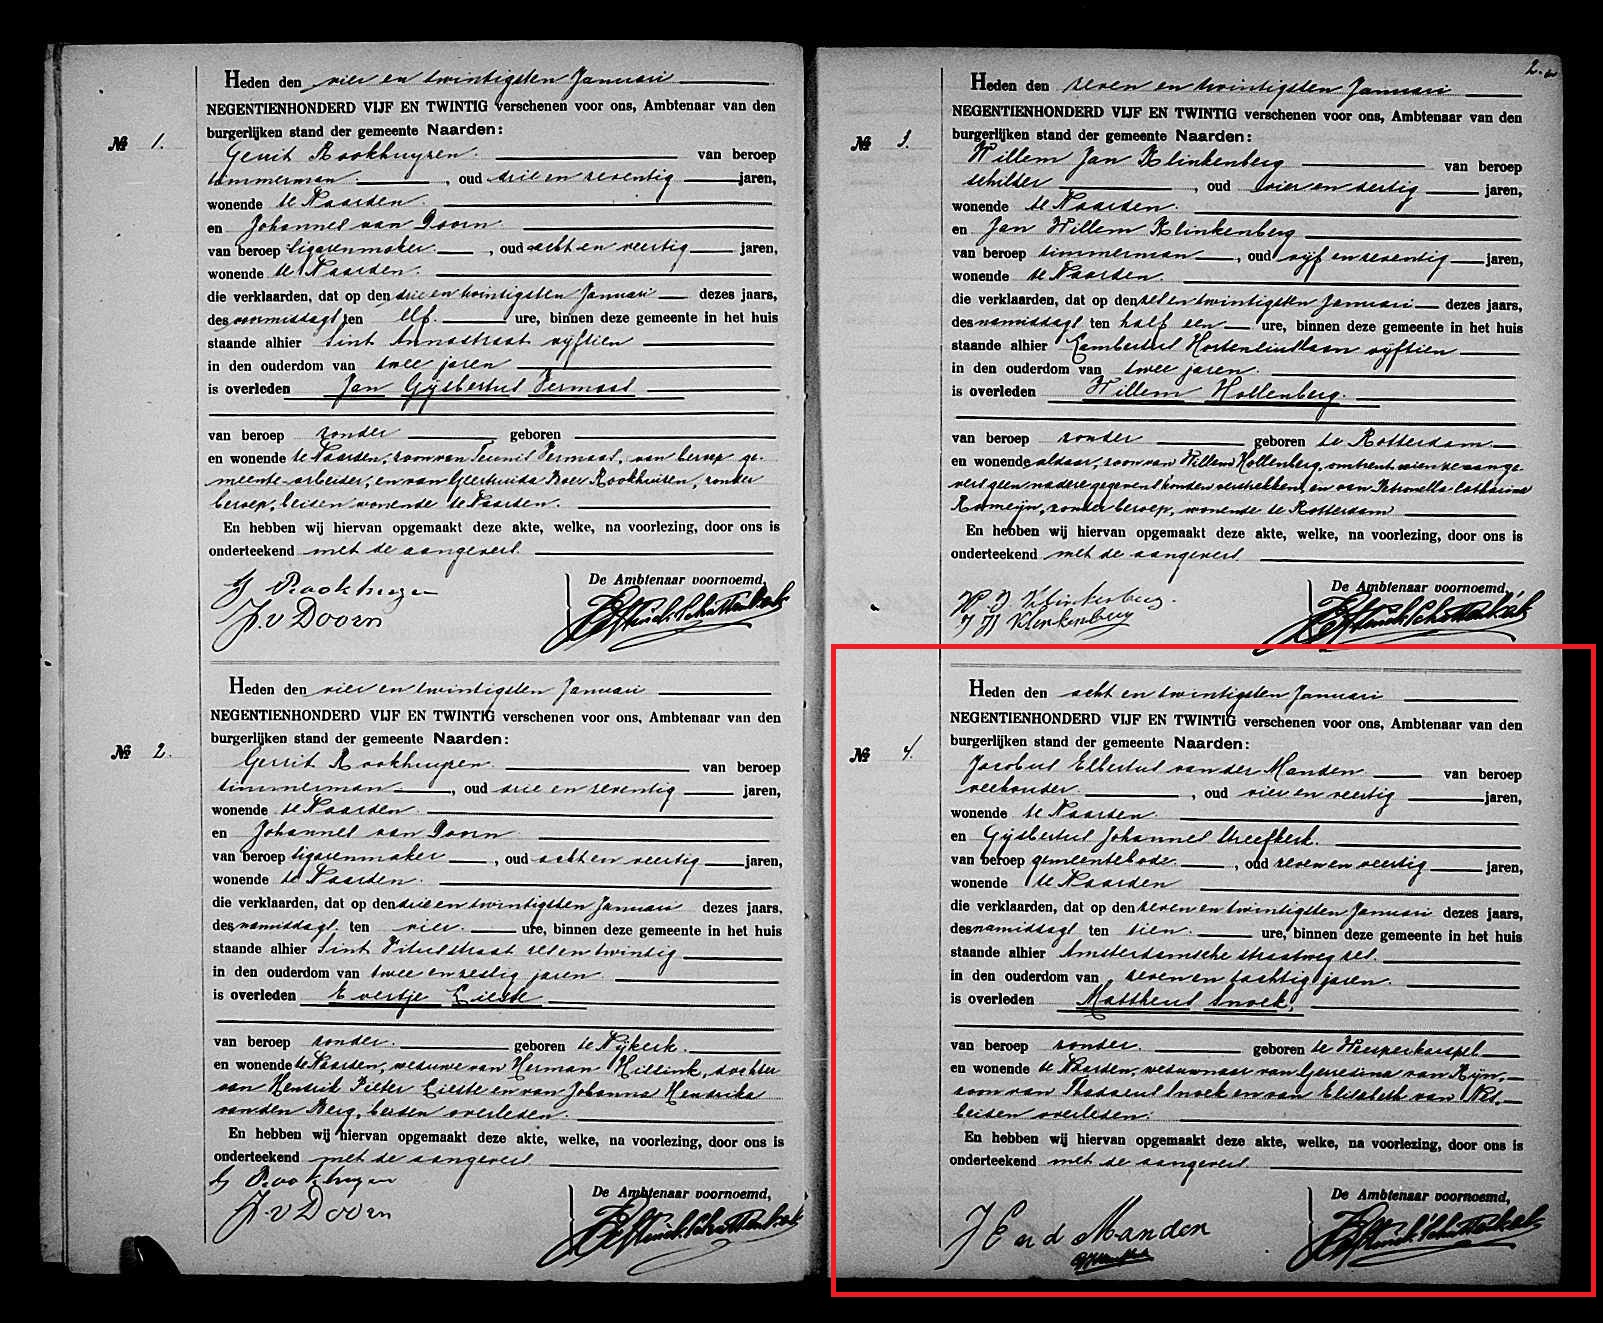 2.
Heden den vier en twintigsten Januari
NEGENTIENHONDERD VIJF EN TWINTIG verschenen voor ons, Ambtenaar van den
burgerlijken stand der gemeente Naarden:
№ 1.
Gerrit Rookhuyzen van beroep
timmerman, oud drie en zeventig jaren,
wonende te Naarden.
en Johannes van Doorn
van beroep sigarenmaker, oud acht en veertig jaren,
wonende te Naarden.
die verklaarden, dat op den drie en twintigsten Januari dezes jaars,
des voormiddags ten elf ure, binnen deze gemeente in het huis
staande alhier Sint Annastraat vijftien
in den ouderdom van twee jaren
is overleden Jan Gijsbertus Vermaat
van beroep zonder geboren
en wonende te Naarden, zoon van Teunis Vermaat, van beroep ge-
meente arbeider, en van Geertruida Boer Rookhuizen, zonder
beroep, beiden wonende te Naarden.
En hebben wij hiervan opgemaakt deze akte, welke, na voorlezing, door ons is
onderteekend met de aangevers.
De Ambtenaar voornoemd,
G Rookhuyzen
J. v Doorn
Heden den vier en twintigsten Januari
NEGENTIENHONDERD VIJF EN TWINTIG verschenen voor ons, Ambtenaar van den
burgerlijken stand der gemeente Naarden:
№ 2.
Gerrit Rookhuyzen van beroep
timmerman, oud drie en zeventig jaren,
wonende te Naarden.
en Johannes van Doorn
van beroep sigarenmaker, oud acht en veertig jaren,
wonende te Naarden.
die verklaarden, dat op den drie en twintigsten Januari dezes jaars,
des namiddags ten vier ure, binnen deze gemeente in het huis
staande alhier Sint Vitusstraat zes en twintig
in den ouderdom van twee en zestig jaren
is overleden Evertje Lieste
van beroep zonder. geboren te Nijkerk.
en wonende te Naarden, weduwe van Herman Hissink, dochter
van Hendrik Pieter Lieste en van Johanna Hendrika
van den Berg, beiden overleden.
En hebben wij hiervan opgemaakt deze akte, welke, na voorlezing, door ons is
onderteekend met de aangevers.
G Rookhuyzen
De Ambtenaar voornoemd,
J. v Doorn
Heden den zeven en twintigsten Januari
NEGENTIENHONDERD VIJF EN TWINTIG verschenen voor ons, Ambtenaar van den
burgerlijken stand der gemeente Naarden:
№ 3.
Willem Jan Klinkenberg van beroep
schilder, oud vier en dertig jaren,
wonende te Naarden.
en Jan Willem Klinkenberg
van beroep timmerman, oud vijf en zeventig jaren,
wonende te Naarden.
die verklaarden, dat op den zes en twintigsten Januari dezes jaars,
des namiddags ten half een ure, binnen deze gemeente in het huis
staande alhier Lambertus Hortensiuslaan vijftien
in den ouderdom van twee jaren.
is overleden Willem Hollenberg.
van beroep zonder geboren te Rotterdam
en wonende aldaar, zoon van Willem Hollenberg, omtrent wien de aange-
vers geen nadere gegevens konden verstrekken, en van Petronella Catharina
Romeijn, zonder beroep, wonende te Rotterdam
En hebben wij hiervan opgemaakt deze akte, welke, na voorlezing, door ons is
onderteekend met de aangevers
De Ambtenaar voornoemd,
W J Klinkenberg
J W Klinkenberg
Heden den acht en twintigsten Januari
NEGENTIENHONDERD VIJF EN TWINTIG verschenen voor ons, Ambtenaar van den
burgerlijken stand der gemeente Naarden:
№ 4.
Jacobus Elbertus van der Manden van beroep
veehouder, oud vier en veertig jaren,
wonende te Naarden
en Gijsbertus Johannes Vreefkerk.
van beroep gemeentebode, oud zeven en veertig jaren,
wonende te Naarden
die verklaarden, dat op den zeven en twintigsten Januari dezes jaars,
des namiddags ten tien ure, binnen deze gemeente in het huis
staande alhier Amsterdamsche straatweg zes.
in den ouderdom van zeven en tachtig jaren.
is overleden Mattheus Snoek,
van beroep zonder. geboren te Weesperkarspel
en wonende te Naarden, weduwnaar van Gerredina van Rijn,
zoon van Thadaeus Snoek en van Elisabeth van Nes,
beiden overleden.
En hebben wij hiervan opgemaakt deze akte, welke, na voorlezing, door ons is
onderteekend met de aangevers.
De Ambtenaar voornoemd,
J E v d Manden